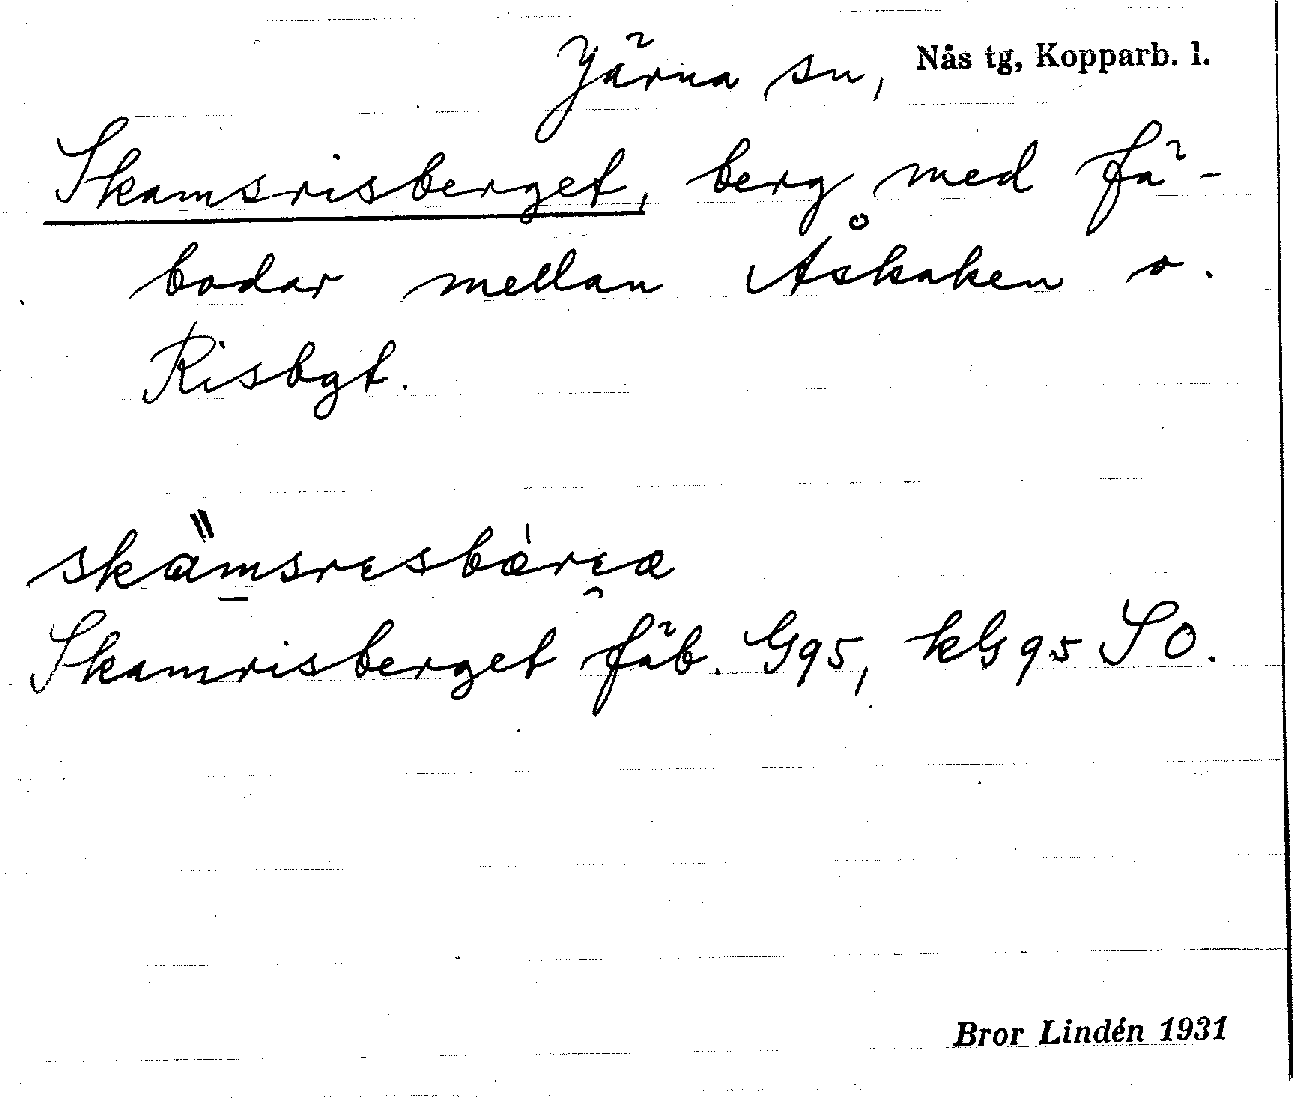 Järna sn, Nås tg, Kopparb. l.
Skamsrisberget, berg med fä-
bodar mellan Åskaken o.
Risbgt.
Skamrisberget fäb. G95, kG95 SO.
Bror Lindén 1931